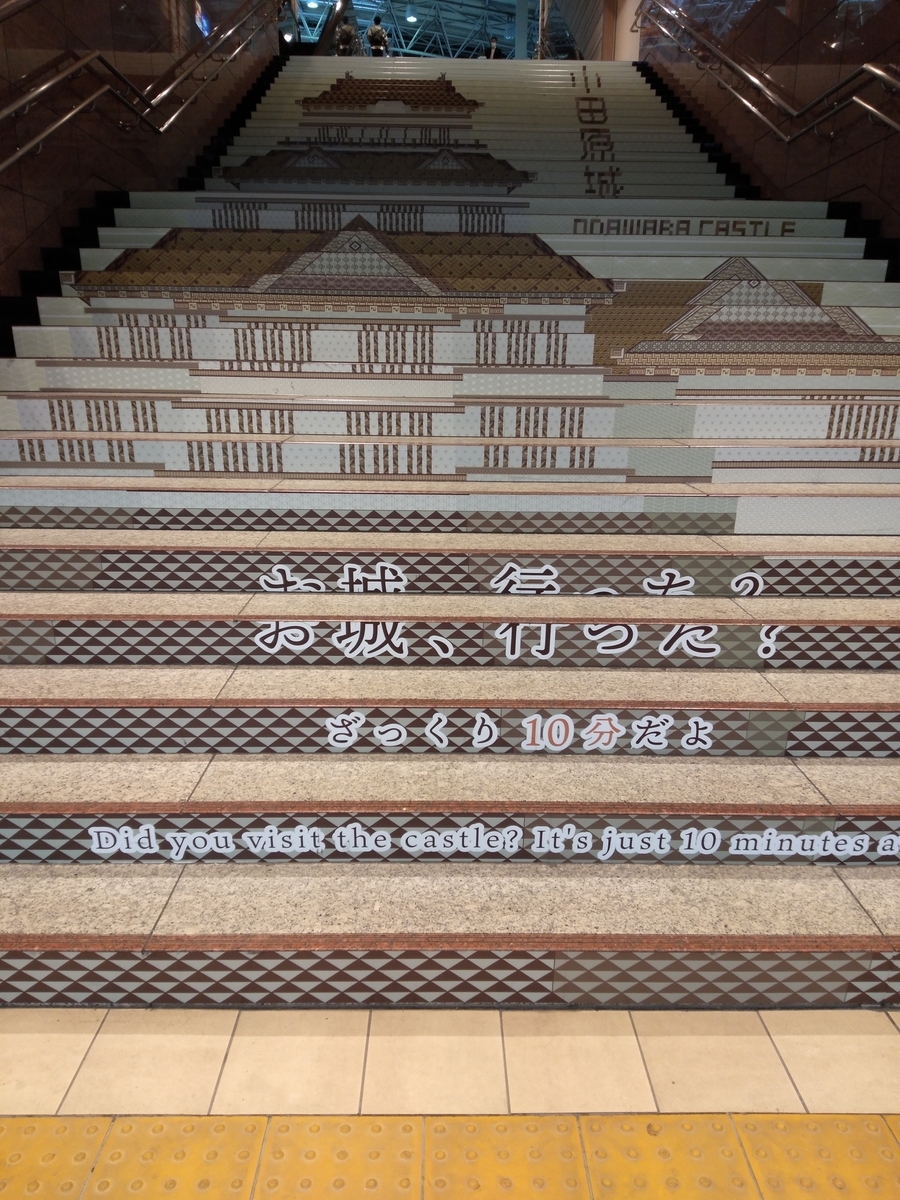 小田原城
ODAWARA CASTLE
お城、行った?
ざっくり10分だよ
Did you visit the castle? It's just 10 minutes a